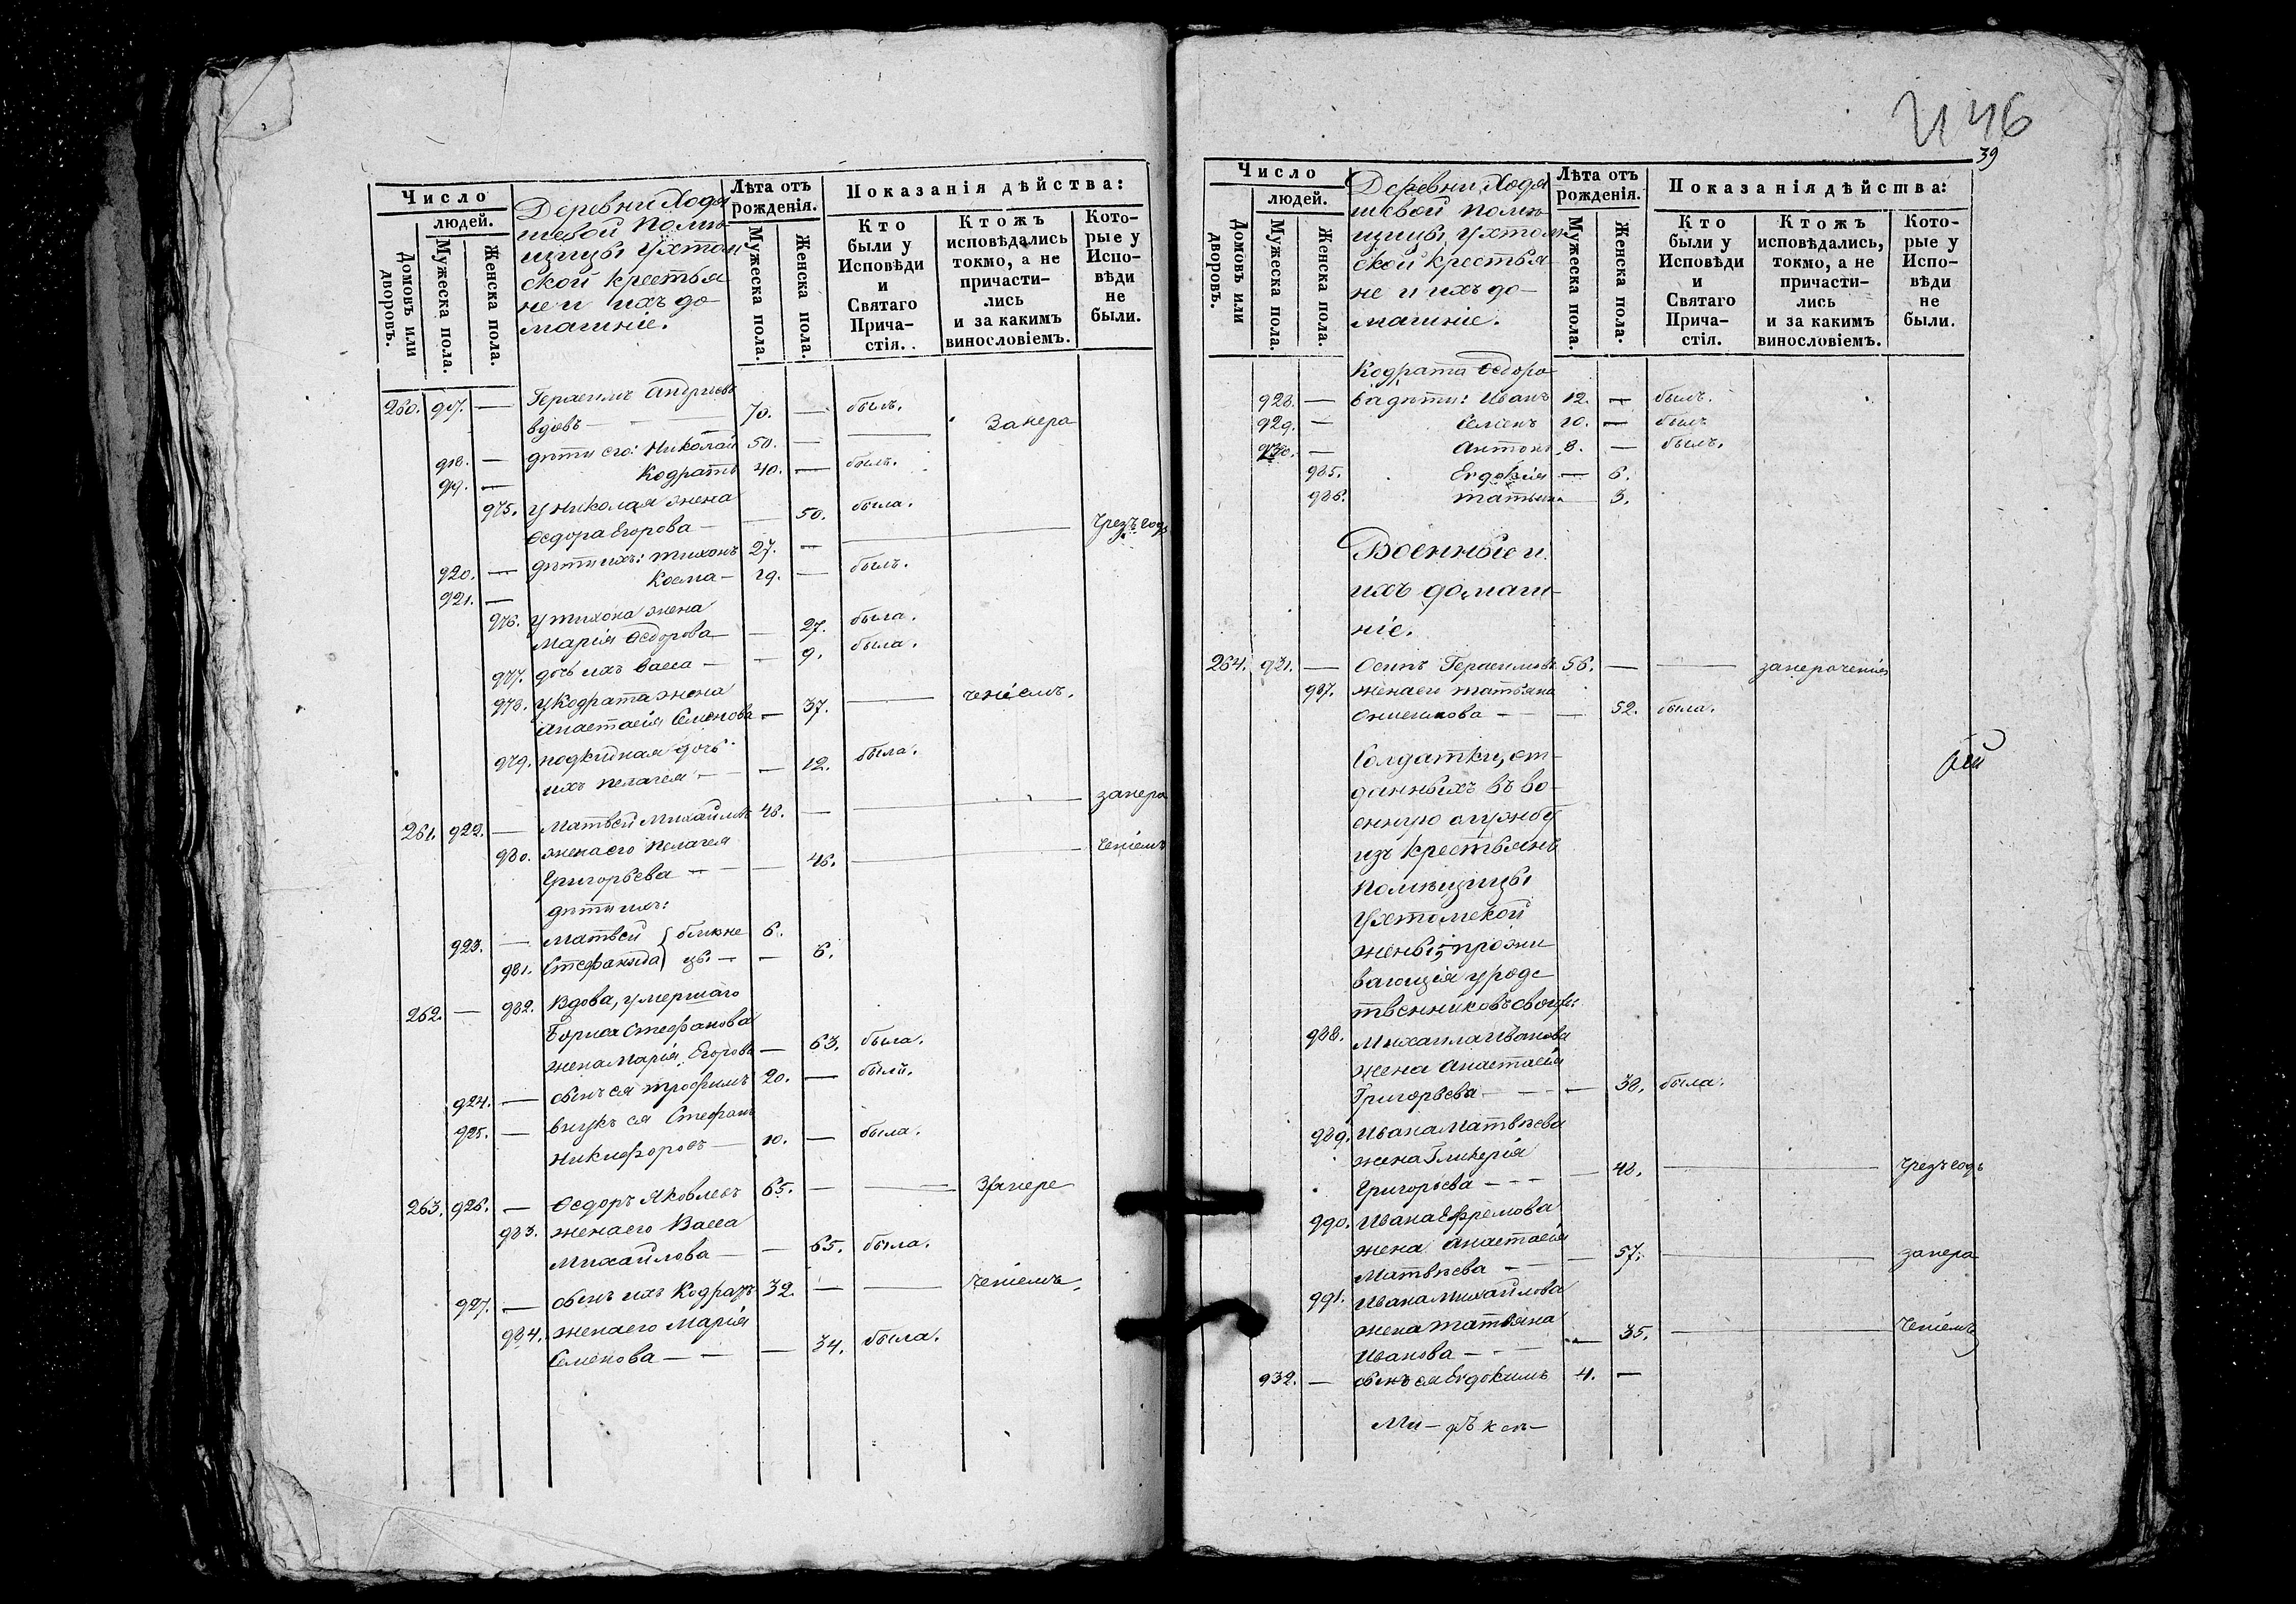 Число
людей.
Домовъ или дворовъ.
Мужеска пола.
Женска пола.
Деревни Ходя
шевой помѣ
щицы Ухтом
ской крестья
не и ихъ до
машніе.
Лѣта отъ рожденія.
Мужеска пола.
Женска пола.
Показанія дѣйства:
Кто были у Исповѣди и Святаго Причастія.
Ктожъ исповѣдались токмо, а не причастились и за какимъ винословіемъ.
Которые у Исповѣди не были.
260. 917. — Герасимъ Андреевъ
вдовъ — 70. — былъ.
918. — дѣти его: Николай 50. — — Занера
919. — Кодратъ 40. — былъ.
975. у Николая жена
Ѳедора Егорова — — 50. была.
920. — дѣти ихъ: Тихонъ 27. — — чрезъ годъ
921. — Косма — 19. — былъ.
976. у Тихона жена
Марія Ѳедорова — 27. была.
977. дочь ихъ Васса — — 9. была.
978. у Кодрата жена
Анастасія Семенова — 37. — ченіемъ.
979. подкидная дочь
ихъ Пелагея — — 12. была.
261. 922. — Матвей Михайловъ 48. — — занера
980. жена его Пелагея
Григорьева — — 46. — ченіемъ
дѣти ихъ:
923. — Матвей } близне 6.
981. Стефанида } цы — — 6.
262. — 982. Вдова, умершаго
Бориса Стефанова
жена Марія Егорова — 63. была.
924. — сынъ ея Трофимъ 20. — былъ.
925. — внукъ ея Стефанъ
Никифоровъ — 10. — была.
263. 926. — Ѳедоръ Яковлевъ 65. — — Занере
983. жена его Васса
Михайлова — — 65. была.
927. — сынъ ихъ Кодратъ 32. — — ченіемъ
984. жена его Марія
Семенова — — — 34. была.
46
39
Число
людей.
Домовъ или дворовъ.
Мужеска пола.
Женска пола.
Деревни Ходя
шевой помѣ
щицы Ухтом
ской крестья
не и ихъ до
машніе.
Лѣта отъ рожденія.
Мужеска пола.
Женска пола.
Показанія дѣйства:
Кто были у Исповѣди и Святаго Причастія.
Ктожъ исповѣдались, токмо, а не причастились и за какимъ винословіемъ.
Которые у Исповѣди не были.
Кодрата Ѳедоро
928. — ва дѣти: Иванъ 12. — былъ.
929. — Семенъ 10. — былъ
930. — Антонъ 8. — былъ.
985. Евдокія — 6.
986. Татьяна — 3.
Военные и
ихъ домаш
ніе.
264. 931. — Осипъ Герасимовъ 56. — — занерочениемъ
987. жена его Татьяна
Онисимова — — — 52. была.
Солдатки, от
данныхъ въ во
енную службу
изъ крестьянъ
помѣщицы
Ухтомской
жены, прожи
вающія у родс
твенниковъ своихъ:
988. Михаила Иванова
жена Анастасія
Григорьева — — 38. была.
989. Ивана Матвѣева
жена Гликерія
Григорьева — — — 48. — чрезъ годъ
990. Ивана Ефремова
жена Анастасія
Матвѣева — — 57. — занера
991. Ивана Михайлова
жена Татьяна
Иванова — — — 35. — ченіемъ
932. — сынъ ея Евдокимъ 4. —